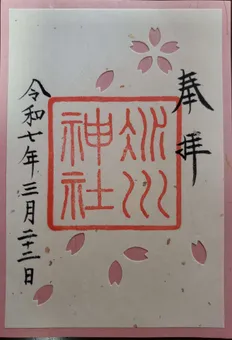 奉拝
氷川
神社
令和七年三月二十二日